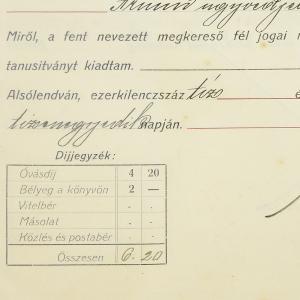 ügyvédje
Miről, a fent nevezett megkereső fél jogai
tanusítványt kiadtam.
Alsólendván, ezerkilenczszáz tíz
tizenegyedik napján.
Díjjegyzék:
Óvásdíj 4 20
Bélyeg a könyvön 2 —
Vitelbér - -
Másolat - -
Közlés és postabér - -
Összesen 6 20